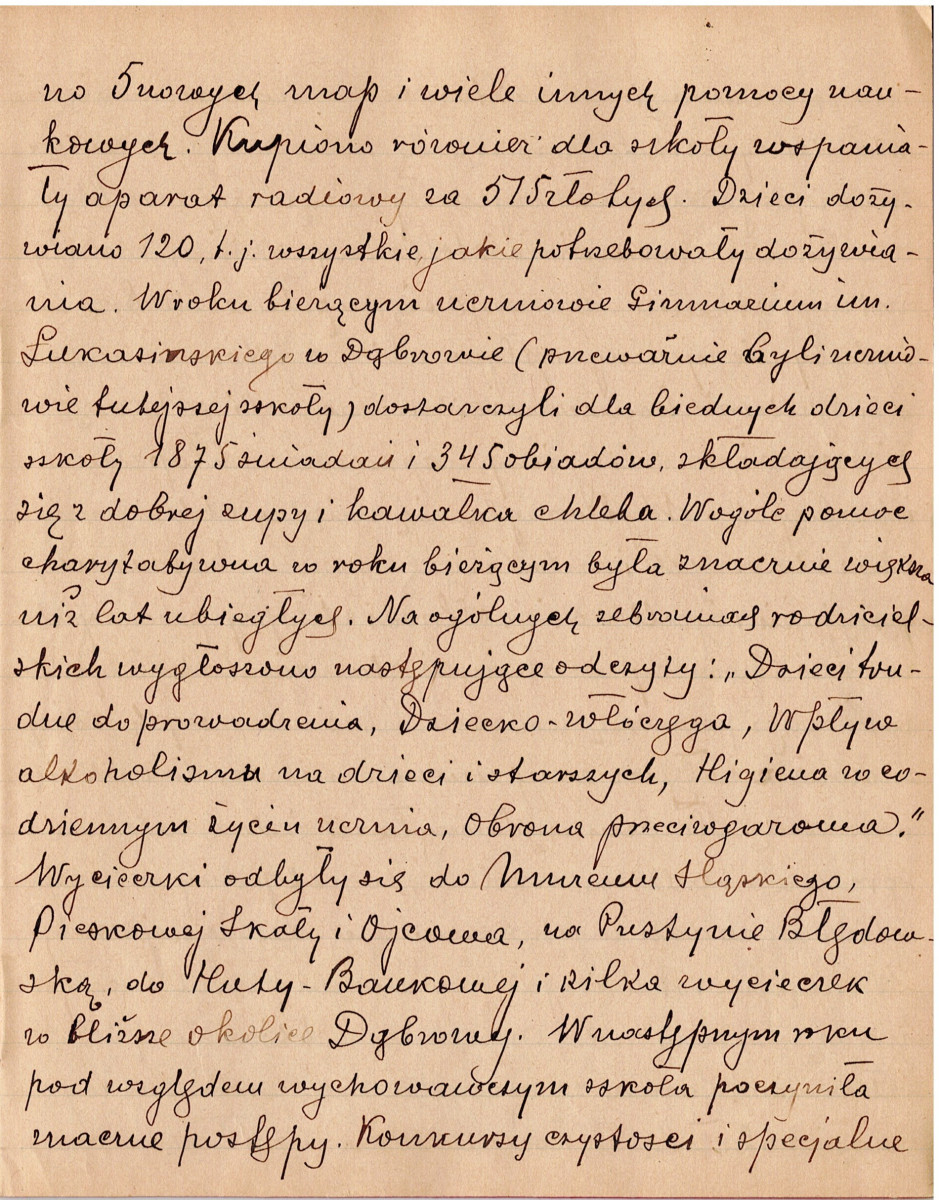 no 5 nowych map i wiele innych pomocy nau-
kowych. Kupiono również dla szkoły wspania-
ły aparat radiowy za 515 złotych. Dzieci doży-
wiano 120, t.j. wszystkie, jakie potrzebowały dożywia-
nia. W roku bieżącym uczniowie Gimnazjum im.
Łukasińskiego w Dąbrowie (przeważnie byli ucznio-
wie tutejszej szkoły) dostarczyli dla biednych dzieci
szkoły 1875 śniadań i 345 obiadów, składających
się z dobrej zupy i kawałka chleba. Wogóle pomoc
charytatywna w roku bieżącym była znacznie większa
niż lat ubiegłych. Na ogólnych zebraniach rodziciel-
skich wygłoszono następujące odczyty: „Dzieci tru-
dne do prowadzenia, Dziecko-włóczęga, Wpływ
alkoholizmu na dzieci i starszych, Higiena w co-
dziennym życiu ucznia, Obrona przeciwgazowa."
Wycieczki odbyły się do Muzeum Śląskiego,
Pieskowej Skały i Ojcowa, na Pustynie Błędow-
ską, do Huty-Bankowej i kilka wycieczek
w bliższe okolice Dąbrowy. W następnym roku
pod względem wychowawczym szkoła poczyniła
znaczne postępy. Konkursy czystości i specjalne